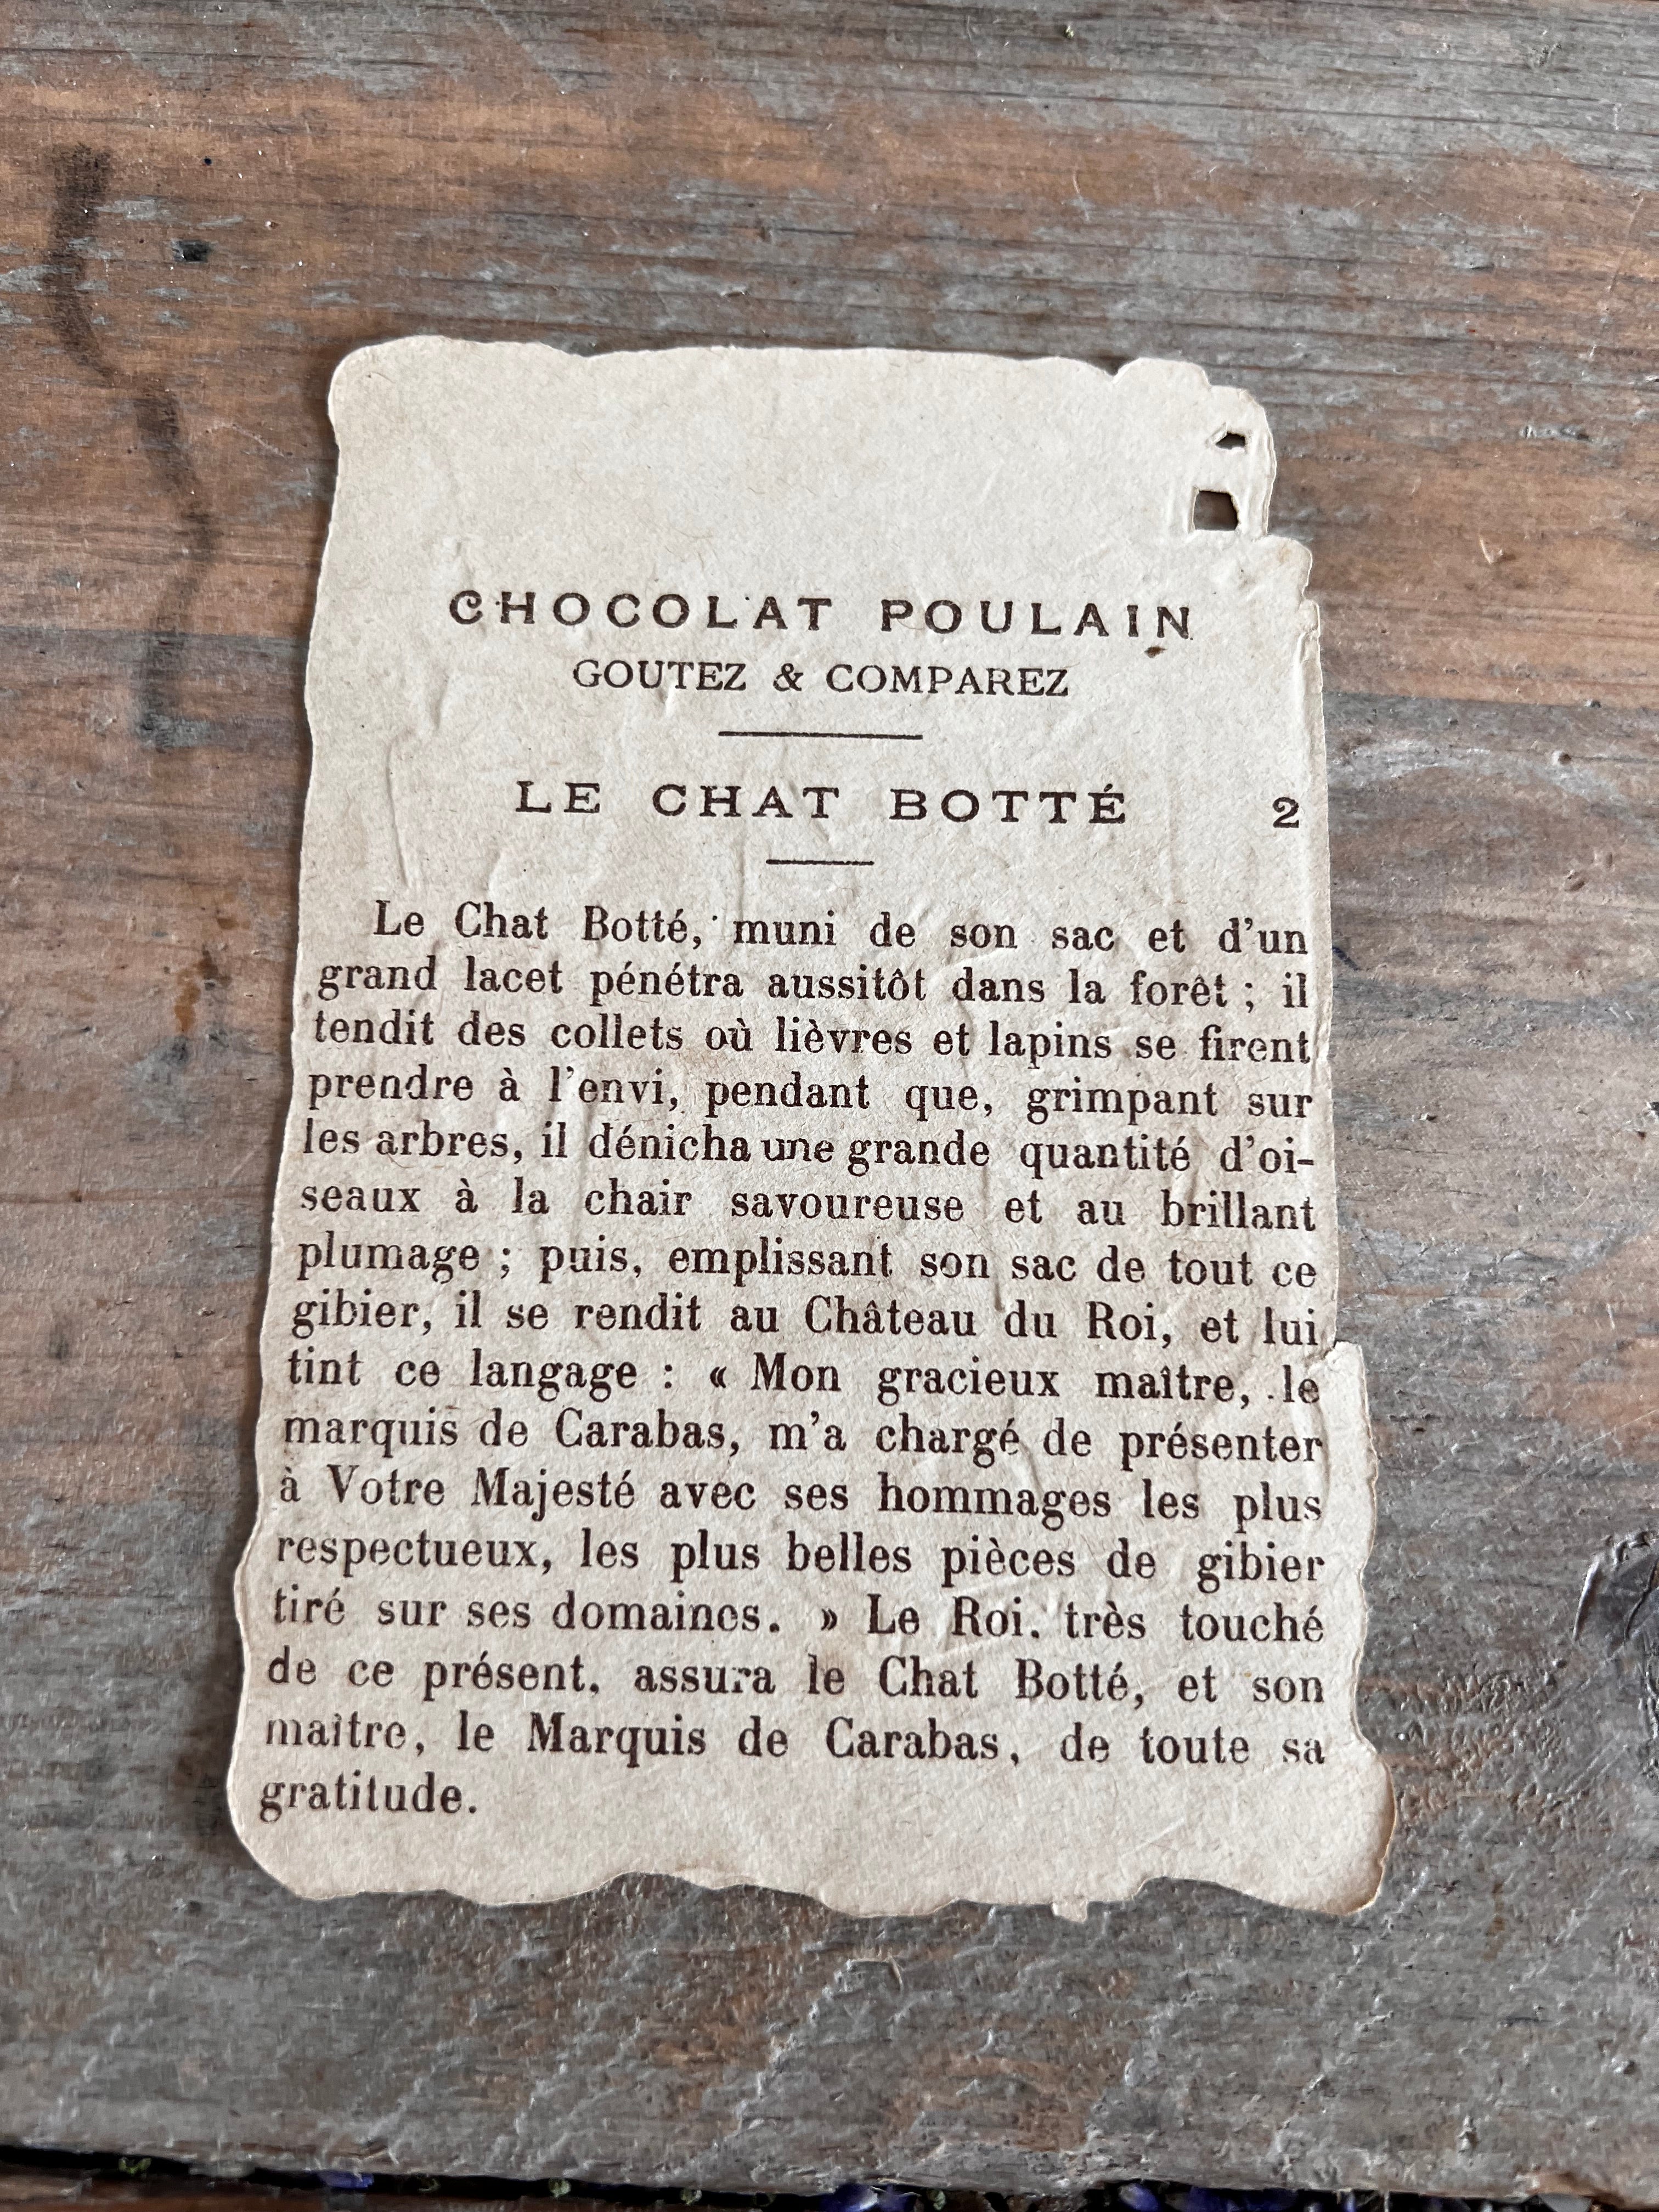 CHOCOLAT POULAIN
GOUTEZ & COMPAREZ
LE CHAT BOTTÉ 2
Le Chat Botté, muni de son sac et d'un
grand lacet pénétra aussitôt dans la forêt ; il
tendit des collets où lièvres et lapins se firent
prendre à l'envi, pendant que, grimpant sur
les arbres, il dénicha une grande quantité d'oi-
seaux à la chair savoureuse et au brillant
plumage ; puis, emplissant son sac de tout ce
gibier, il se rendit au Château du Roi, et lui
tint ce langage : « Mon gracieux maître, le
marquis de Carabas, m'a chargé de présenter
à Votre Majesté avec ses hommages les plus
respectueux, les plus belles pièces de gibier
tiré sur ses domaines. » Le Roi, très touché
de ce présent, assura le Chat Botté, et son
maître, le Marquis de Carabas, de toute sa
gratitude.